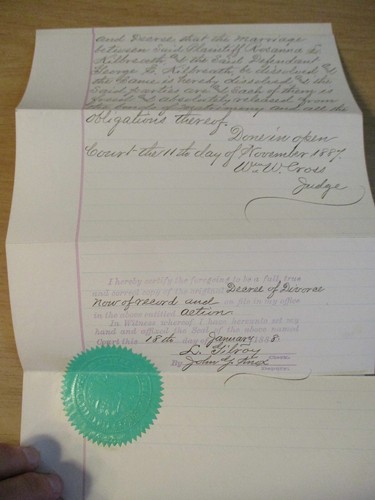 and Decree that the marriage
between Said Plaintiff Rosanna E.
Kilbreath & the Said Defendant
George G. Kilbreath, be dissolved &
the Same is hereby dissolved & the
Said parties are & Each of them is
freed & absolutely released from
the bonds of matrimony and all the
obligations thereof.
Done in open
Court the 11th day of November 1887.
Wm W. Cross
Judge
I hereby certify the foregoing to be a full, true
and correct copy of the original Decree of Divorce
now of record and on file in my office
in the above entitled action.
In Witness whereof I have hereunto set my
hand and affixed the Seal of the above named
Court this 18th day of January 1888.
L. Gilroy
Clerk.
By John J.
Deputy.